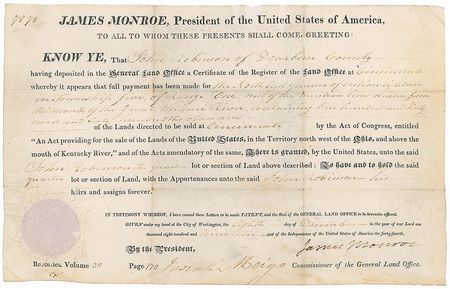 7278
JAMES MONROE, President of the United States of America,
TO ALL TO WHOM THESE PRESENTS SHALL COME, GREETING:
KNOW YE, That John Robinson of Dearborn County
having deposited in the General Land Office a Certificate of the Register of the Land Office at Cincinnati
whereby it appears that full payment has been made for the North East quarter of section
in Township five of Range One
the mouth of River, containing One hundred and sixty
acres and hundredths of an acre
of the Lands directed to be sold at Cincinnati by the Act of Congress, entitled
“An Act providing for the sale of the Lands of the United States, in the Territory north west of the Ohio, and above the
mouth of Kentucky River,” and of the Acts amendatory of the same, There is granted, by the United States, unto the said
John Robinson the
quarter lot or section of Land above described: To have and to hold the said
lot or section of Land, with the Appurtenances unto the said John Robinson his
heirs and assigns forever.
IN TESTIMONY WHEREOF, I have caused these Letters to be made PATENT, and the Seal of the GENERAL LAND OFFICE to be hereunto affixed.
GIVEN under my hand at the City of Washington, the day of December in the year of our Lord one
thousand eight hundred and nineteen and of the Independence of the United States of America the forty-fourth.
By the President, James Monroe
Recorded, Volume 38 Page 170 Josiah Meigs Commissioner of the General Land Office.